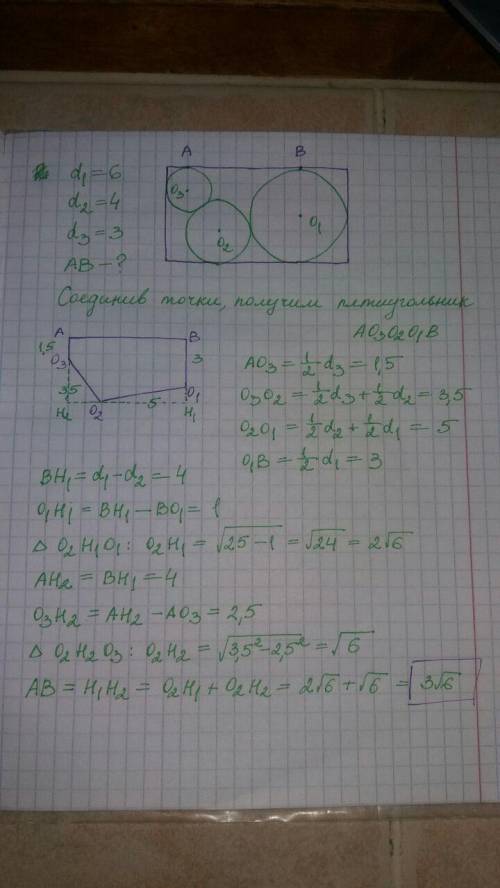 A B
d₁ = 6
d₂ = 4
d₃ = 3
AB – ?
O₃
O₂
O₁
Соединив точки, получим пятиугольник
AO₃O₂O₁B
A B
1,5 3
O₃
3,5
O₁
H₂ O₂ 5 H₁
AO₃ = ½ d₃ = 1,5
O₃O₂ = ½ d₃ + ½ d₂ = 3,5
O₂O₁ = ½ d₂ + ½ d₁ = 5
O₁B = ½ d₁ = 3
BH₁ = d₁ – d₂ = 4
O₁H₁ = BH₁ – BO₁ = 1
Δ O₂H₁O₁: O₂H₁ = √(25 – 1) = √24 = 2√6
AH₂ = BH₁ = 4
O₃H₂ = AH₂ – AO₃ = 2,5
Δ O₂H₂O₃: O₂H₂ = √(3,5² – 2,5²) = √6
AB = H₁H₂ = O₂H₁ + O₂H₂ = 2√6 + √6 = 3√6